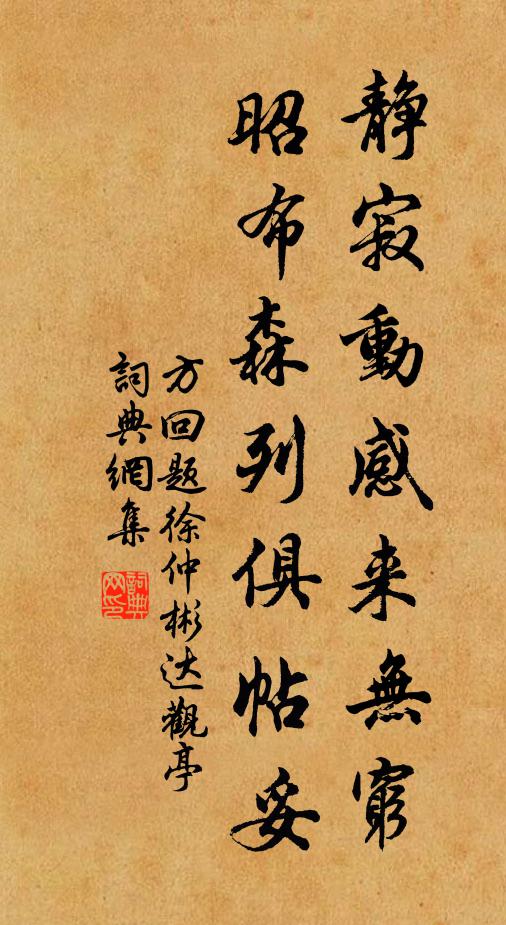 静寂動感来無窮
昭布森列俱帖妥
方回题徐仲彬达觀亭
詞典網集
詞典网印